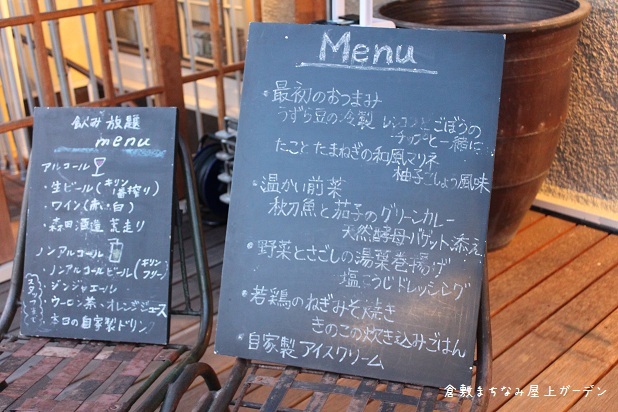 飲み放題
menu
アルコール
・生ビール(キリン一番搾り)
・ワイン(赤・白)
・森田酒造 荒走り
ノンアルコール
・ノンアルコールビール(キリンフリー)
・ジンジャエール
・ウーロン茶・オレンジジュース
・本日の自家製ドリンク
Menu
・最初のおつまみ
うずら豆の冷製 レンコンとごぼうの
チップと一緒に
たことたまねぎの和風マリネ
柚子こしょう風味
・温かい前菜
秋刀魚と茄子のグリーンカレー
天然酵母バゲット添え
・野菜とさごしの湯葉巻揚げ
塩こうじドレッシング
・若鶏のねぎみそ焼き
きのこの炊き込みごはん
・自家製アイスクリーム
倉敷まちなみ屋上ガーデン